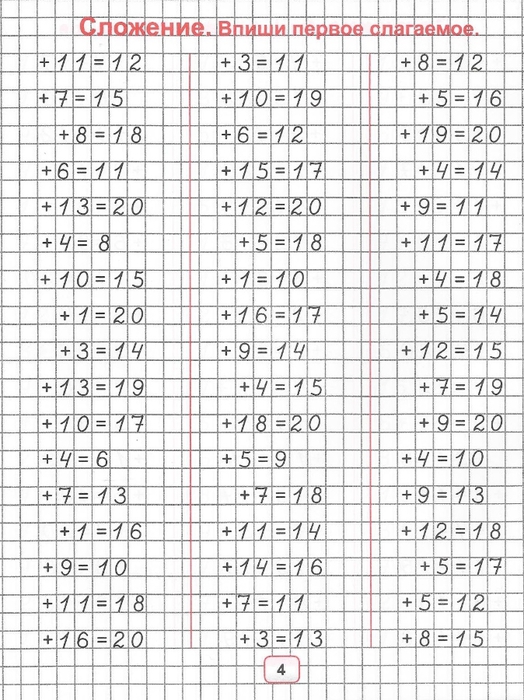 Сложение. Впиши первое слагаемое.
+11=12 +3=11 +8=12
+7=15 +10=19 +5=16
+8=18 +6=12 +19=20
+6=11 +15=17 +4=14
+13=20 +12=20 +9=11
+4=8 +5=18 +11=17
+10=15 +1=10 +4=18
+1=20 +16=17 +5=14
+3=14 +9=14 +12=15
+13=19 +4=15 +7=19
+10=17 +18=20 +9=20
+4=6 +5=9 +4=10
+7=13 +7=18 +9=13
+1=16 +11=14 +12=18
+9=10 +14=16 +5=17
+11=18 +7=11 +5=12
+16=20 +3=13 +8=15
4